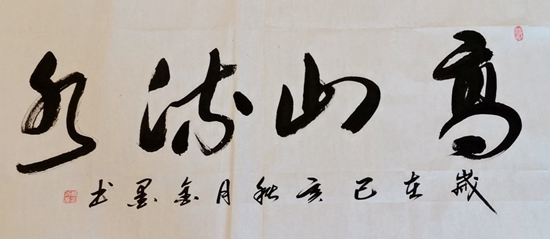 高山流水
歲在己亥秋月金墨书